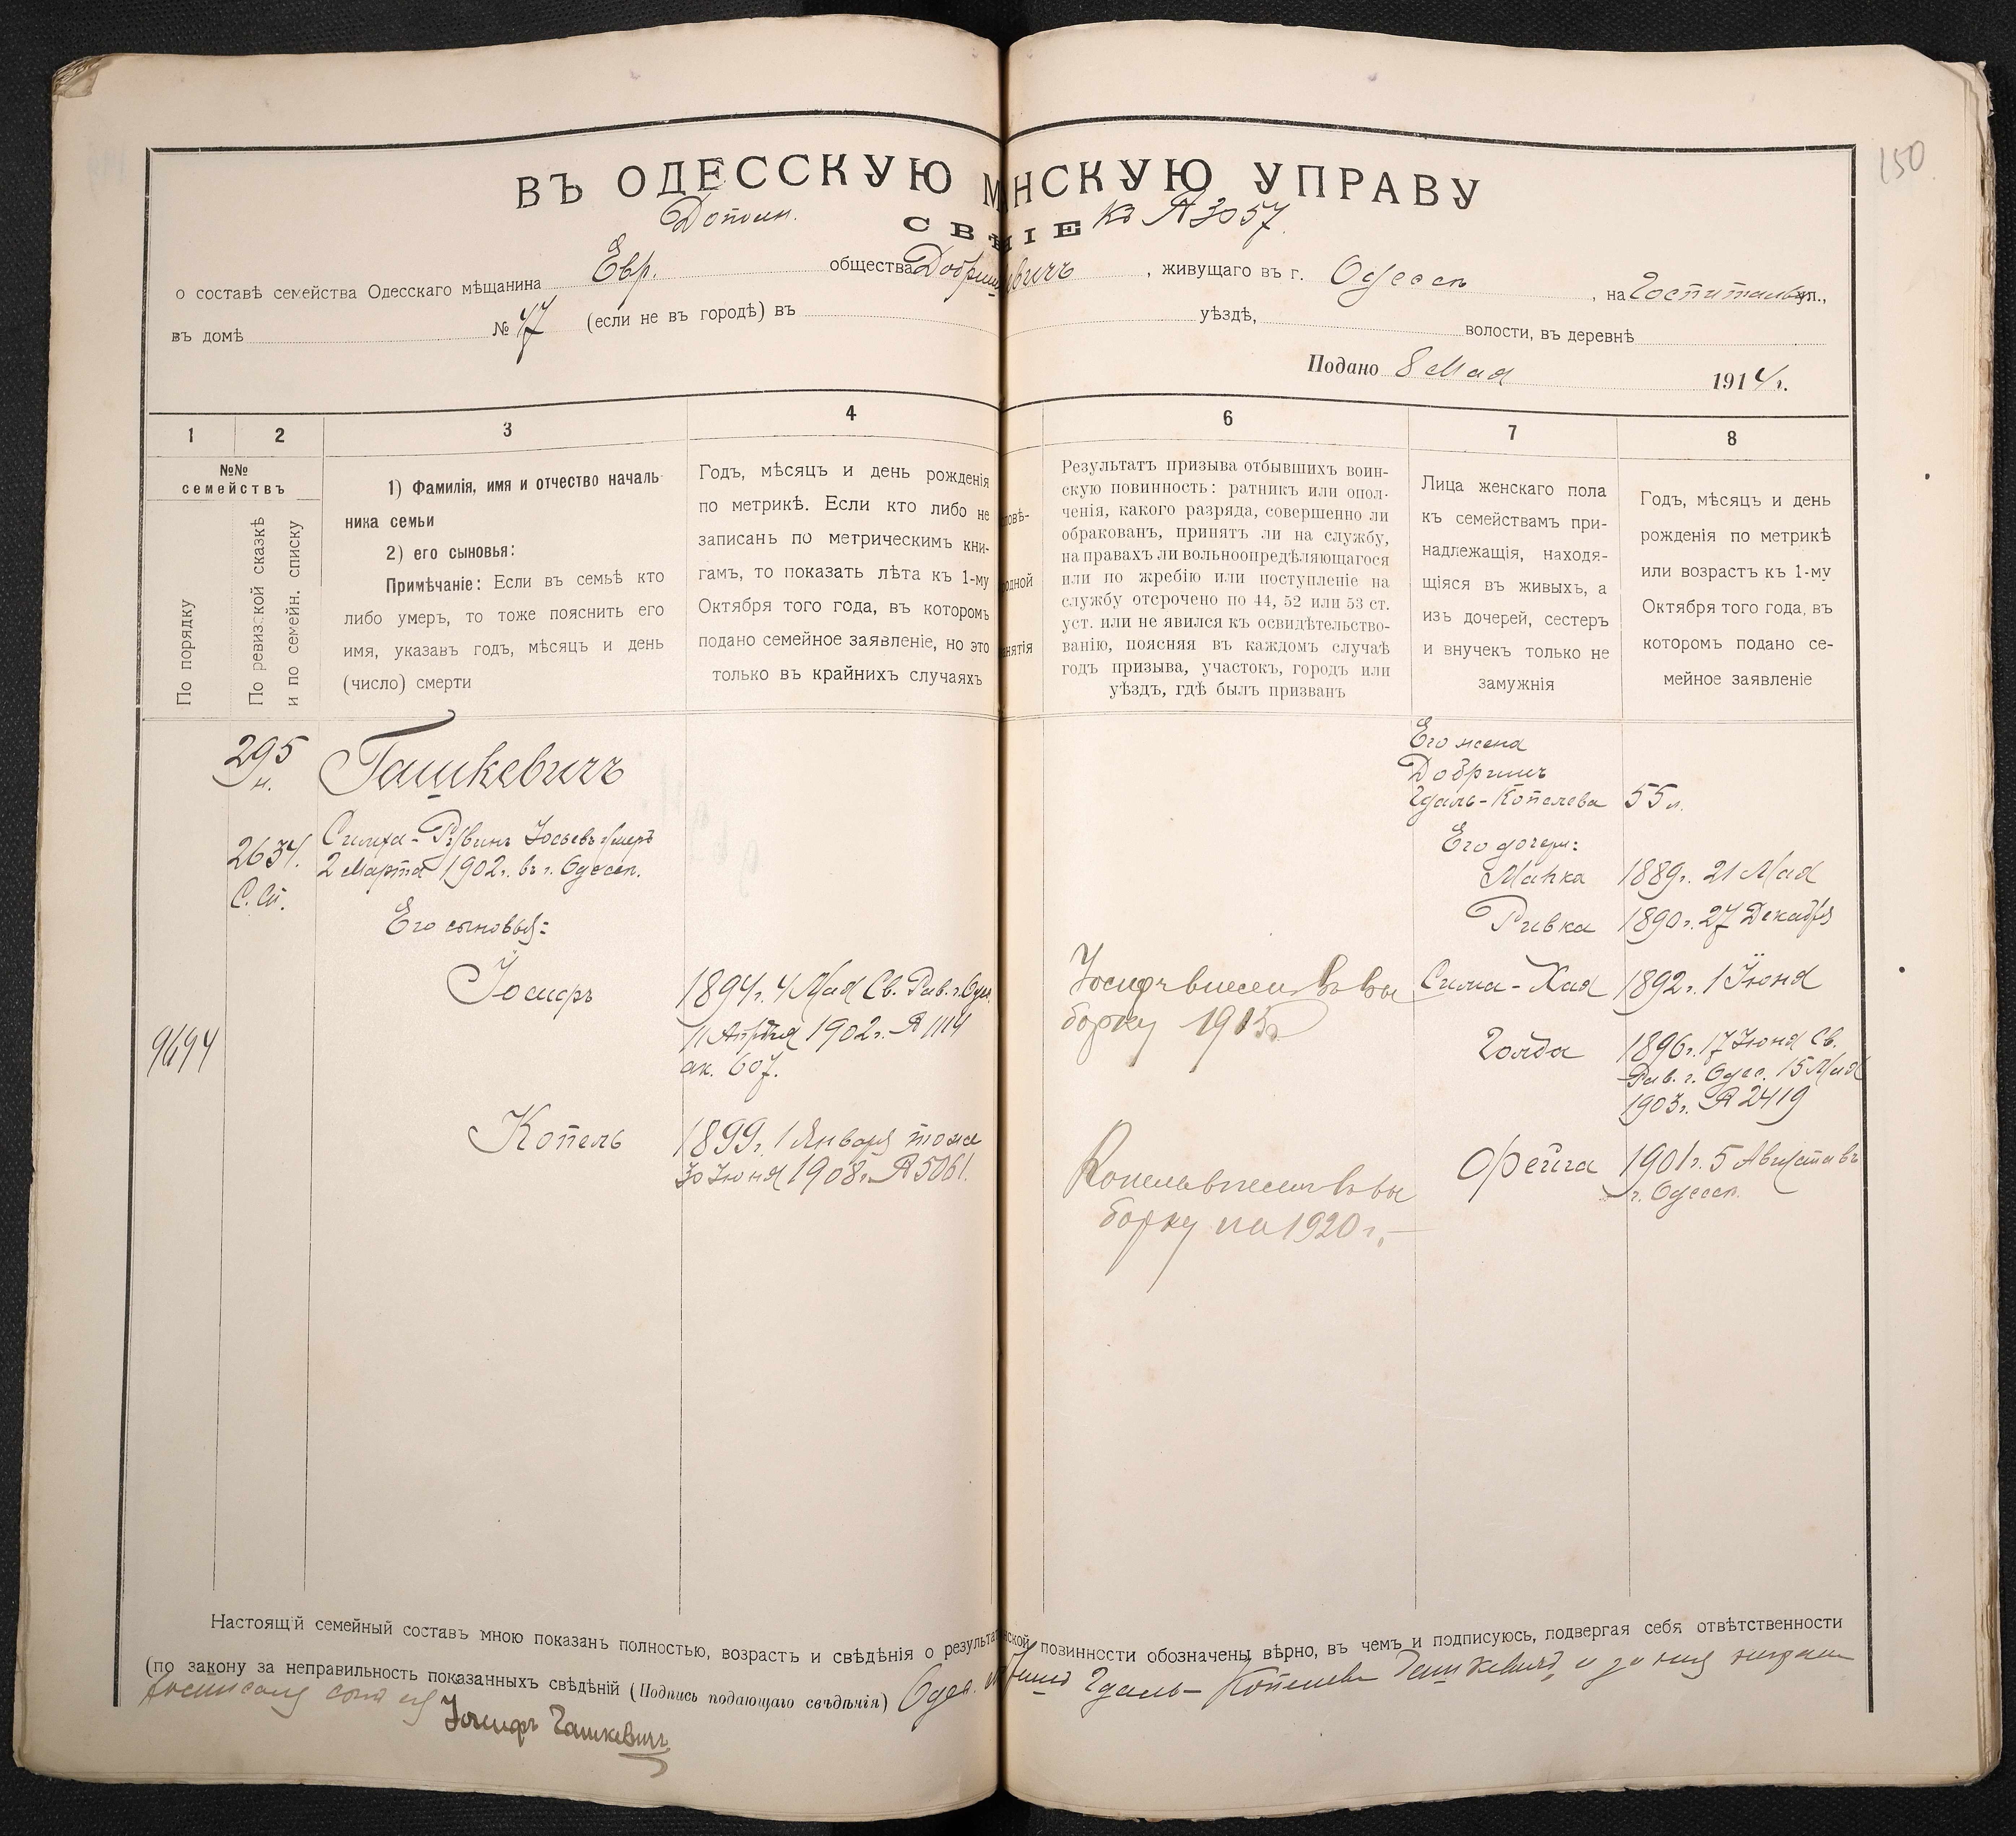 150
ВЪ ОДЕССКУЮ М НСКУЮ УПРАВУ
Дополн.
СВѢ НІЕ къ № 3057.
о составѣ семейства Одесскаго мѣщанина Евр. общества , живущаго въ г. Одессѣ , на Госпитальн. ул.,
въ домѣ № 47 (если не въ городѣ) въ уѣздѣ, волости, въ деревнѣ
Подано 8 Мая 1914 г.
1 2 3 4 6 7 8
№№
семействъ
По порядку
По ревизской сказкѣ
и по семейн. списку
1) Фамилія, имя и отчество началь-
ника семьи
2) его сыновья:
Примѣчаніе: Если въ семьѣ кто
либо умеръ, то тоже пояснить его
имя, указавъ годъ, мѣсяцъ и день
(число) смерти
Годъ, мѣсяцъ и день рожденія
по метрикѣ. Если кто либо не
записанъ по метрическимъ кни-
гамъ, то показать лѣта къ 1-му
Октября того года, въ которомъ
подано семейное заявленіе, но это
только въ крайнихъ случаяхъ
Результатъ призыва отбывшихъ воин-
скую повинность: ратникъ или опол-
ченія, какого разряда, совершенно ли
обракованъ, принятъ ли на службу,
на правахъ ли вольноопредѣляющагося
или по жребію или поступленіе на
службу отсрочено по 44, 52 или 53 ст.
уст. или не явился къ освидѣтельство-
ванію, поясняя въ каждомъ случаѣ
годъ призыва, участокъ, городъ или
уѣздъ, гдѣ былъ призванъ
Лица женскаго пола
къ семействамъ при-
надлежащія, находя-
щіяся въ живыхъ, а
изъ дочерей, сестеръ
и внучекъ только не
замужнія
Годъ, мѣсяцъ и день
рожденія по метрикѣ
или возрастъ къ 1-му
Октября того года, въ
которомъ подано се-
мейное заявленіе
295
н.
Гашкевичъ
2634.
Симха-Рувинъ Іосьевъ умеръ
2 Марта 1902 г. въ г. Одессѣ.
Его сыновья:
9694
Іосифъ
1894 г. 4 Мая Св. Рав. г. Одес.
11 Апрѣля 1902 г. № 1114
ак. 607.
Копель
1899 г. 1 Января тоже
30 Іюня 1908 г. № 5061.
Іосифъ внесенъ въ вы
борку 1915 г.
Копель внесенъ въ вы
борку на 1920 г.
Его жена
Добришъ
Гдаль-Копелева 55 л.
Его дочери:
Манка 1889 г. 21 Мая
Ривка 1890 г. 27 Декабря
Сима-Хая 1892 г. 1 Іюня
Голда 1896 г. 17 Іюня Св.
Рав. г. Одес. 15 Мая
1903 г. № 2419
Фейга 1901 г. 5 Августа въ
г. Одессѣ.
Настоящій семейный составъ мною показанъ полностью, возрастъ и свѣдѣнія о результат нской повинности обозначены вѣрно, въ чемъ и подписуюсь, подвергая себя отвѣтственности
(по закону за неправильность показанныхъ свѣдѣній (Подпись подающаго свѣдѣнія) Одес. Гдаль-Копелева Гашкевичъ, а за нея неграм
росписался сынъ ея Іосифъ Гашкевичъ